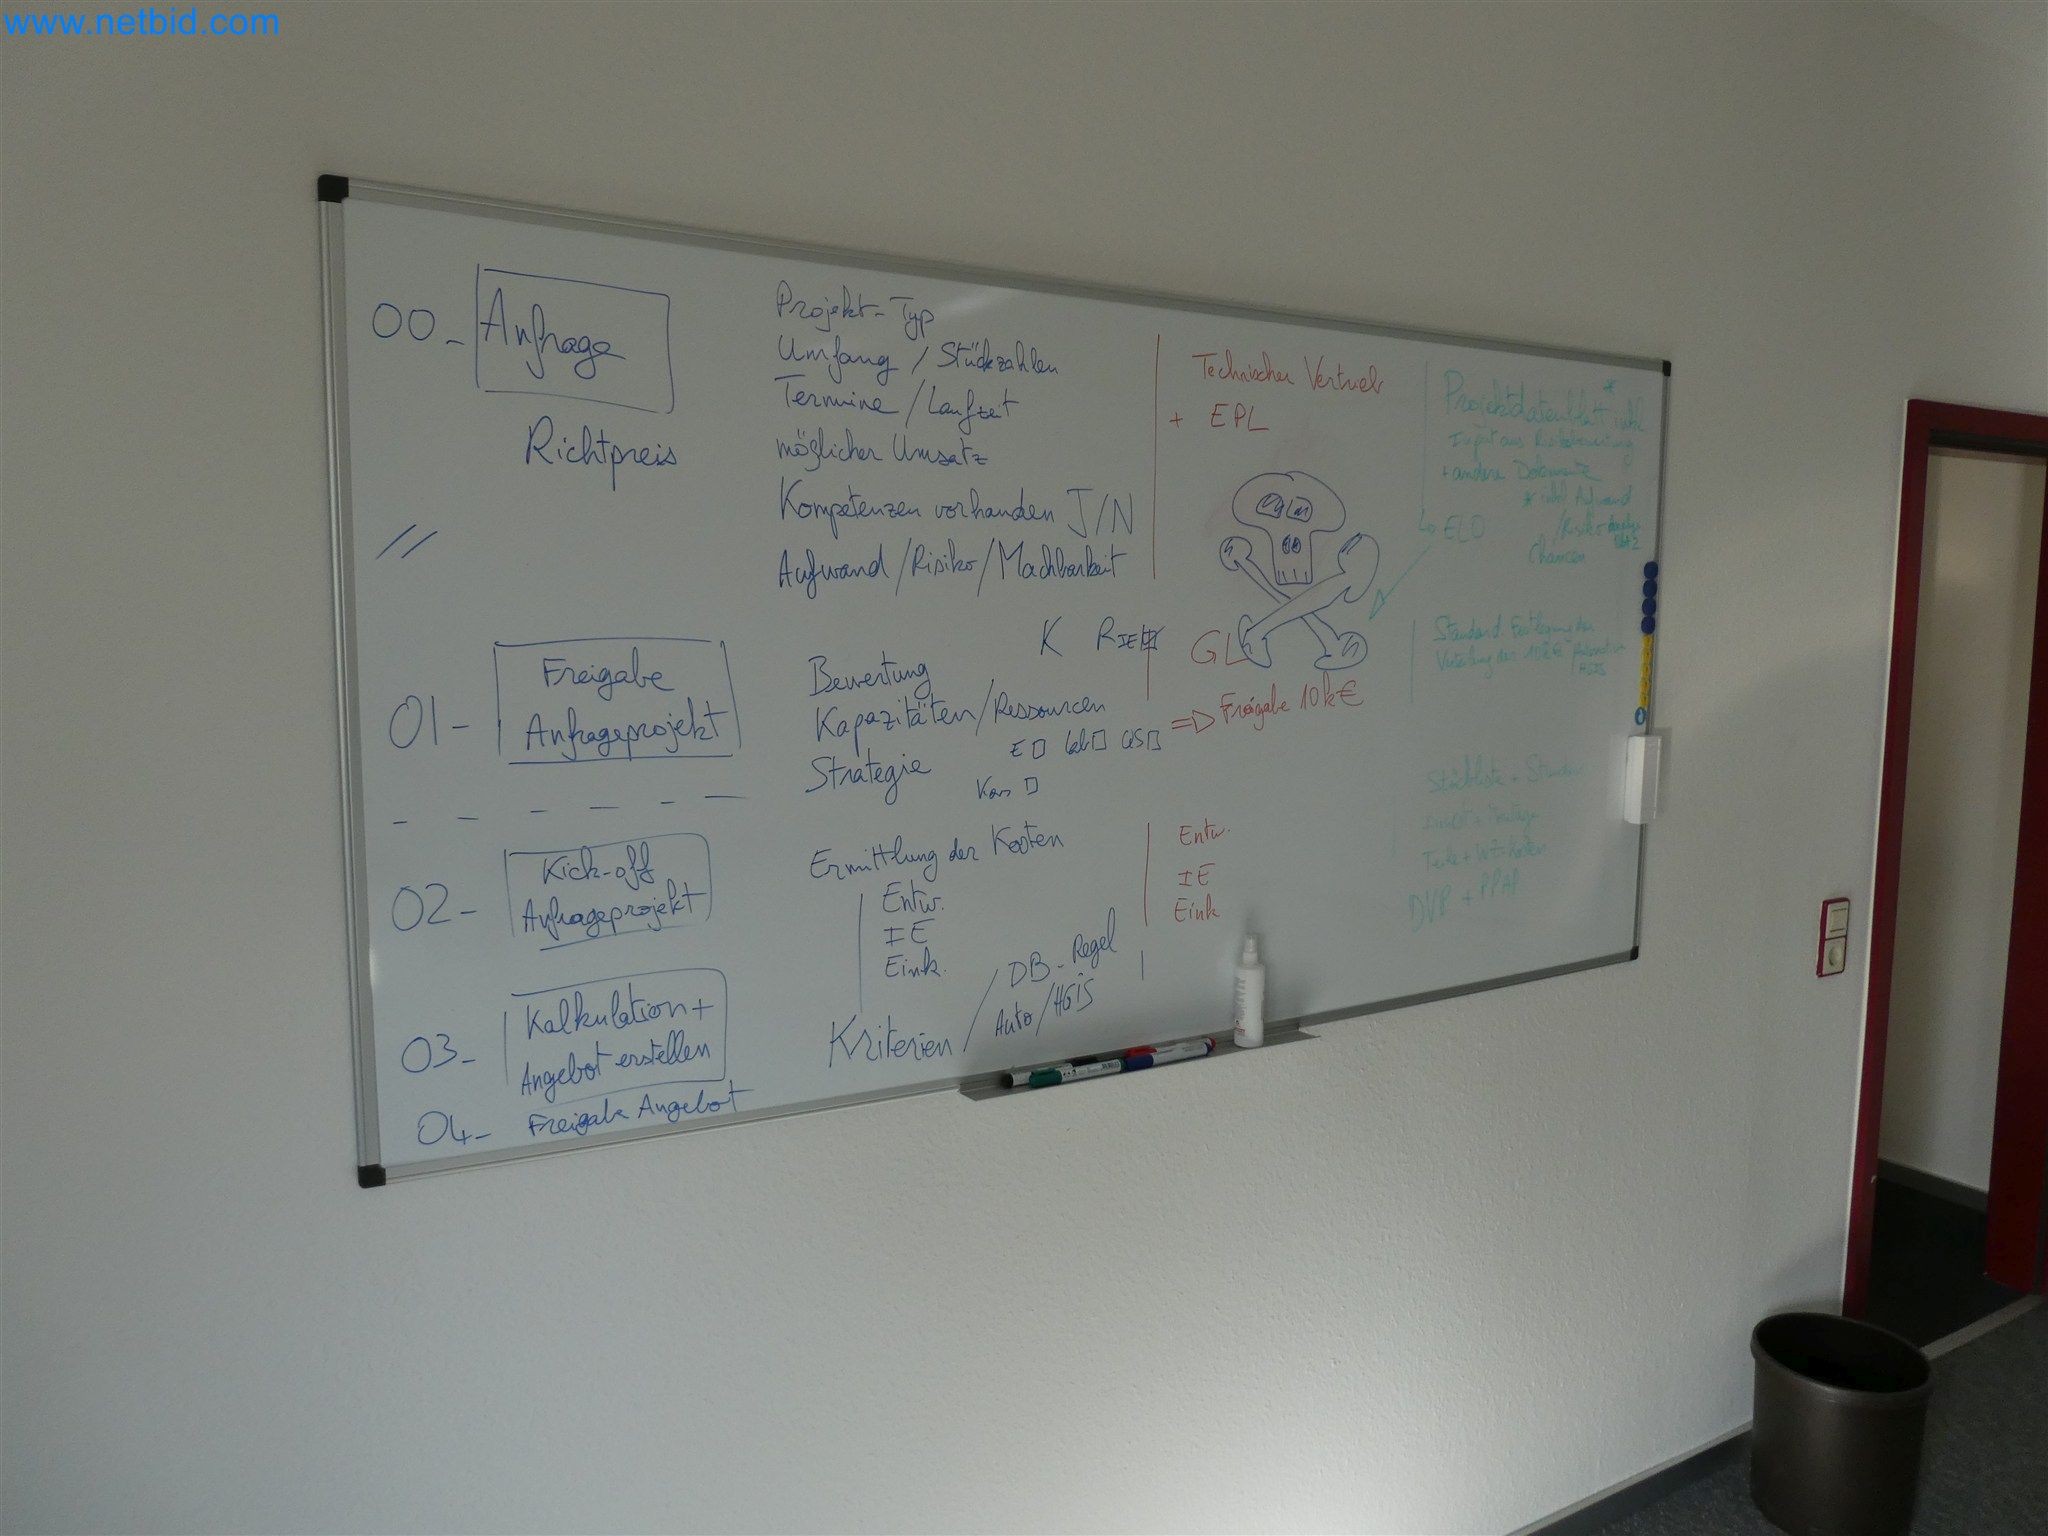 www.netbid.com
00- Anfrage
Richtpreis
//
Projekt-Typ
Umfang / Stückzahlen
Termine / Laufzeit
möglicher Umsatz
Kompetenzen vorhanden J/N
Aufwand / Risiko / Machbarkeit
Technischer Vertrieb
+ EPL
Projektdatenblatt * inkl
+ andere Dokumente
* inkl Aufwand
ELO
Chancen
01- Freigabe
Anfrageprojekt
K
Bewertung
Kapazitäten / Ressourcen
Strategie
GL
=> Freigabe 10k€
Standard
Verteilung der 10k€
02- Kick-off
Anfrageprojekt
Ermittlung der Kosten
Entw.
IE
Eink.
Entw.
IE
Eink
Stückliste +
DVP + PPAP
03- Kalkulation +
Angebot erstellen
Kriterien / DB-Regel
Auto / HGIS
04- Freigabe Angebot